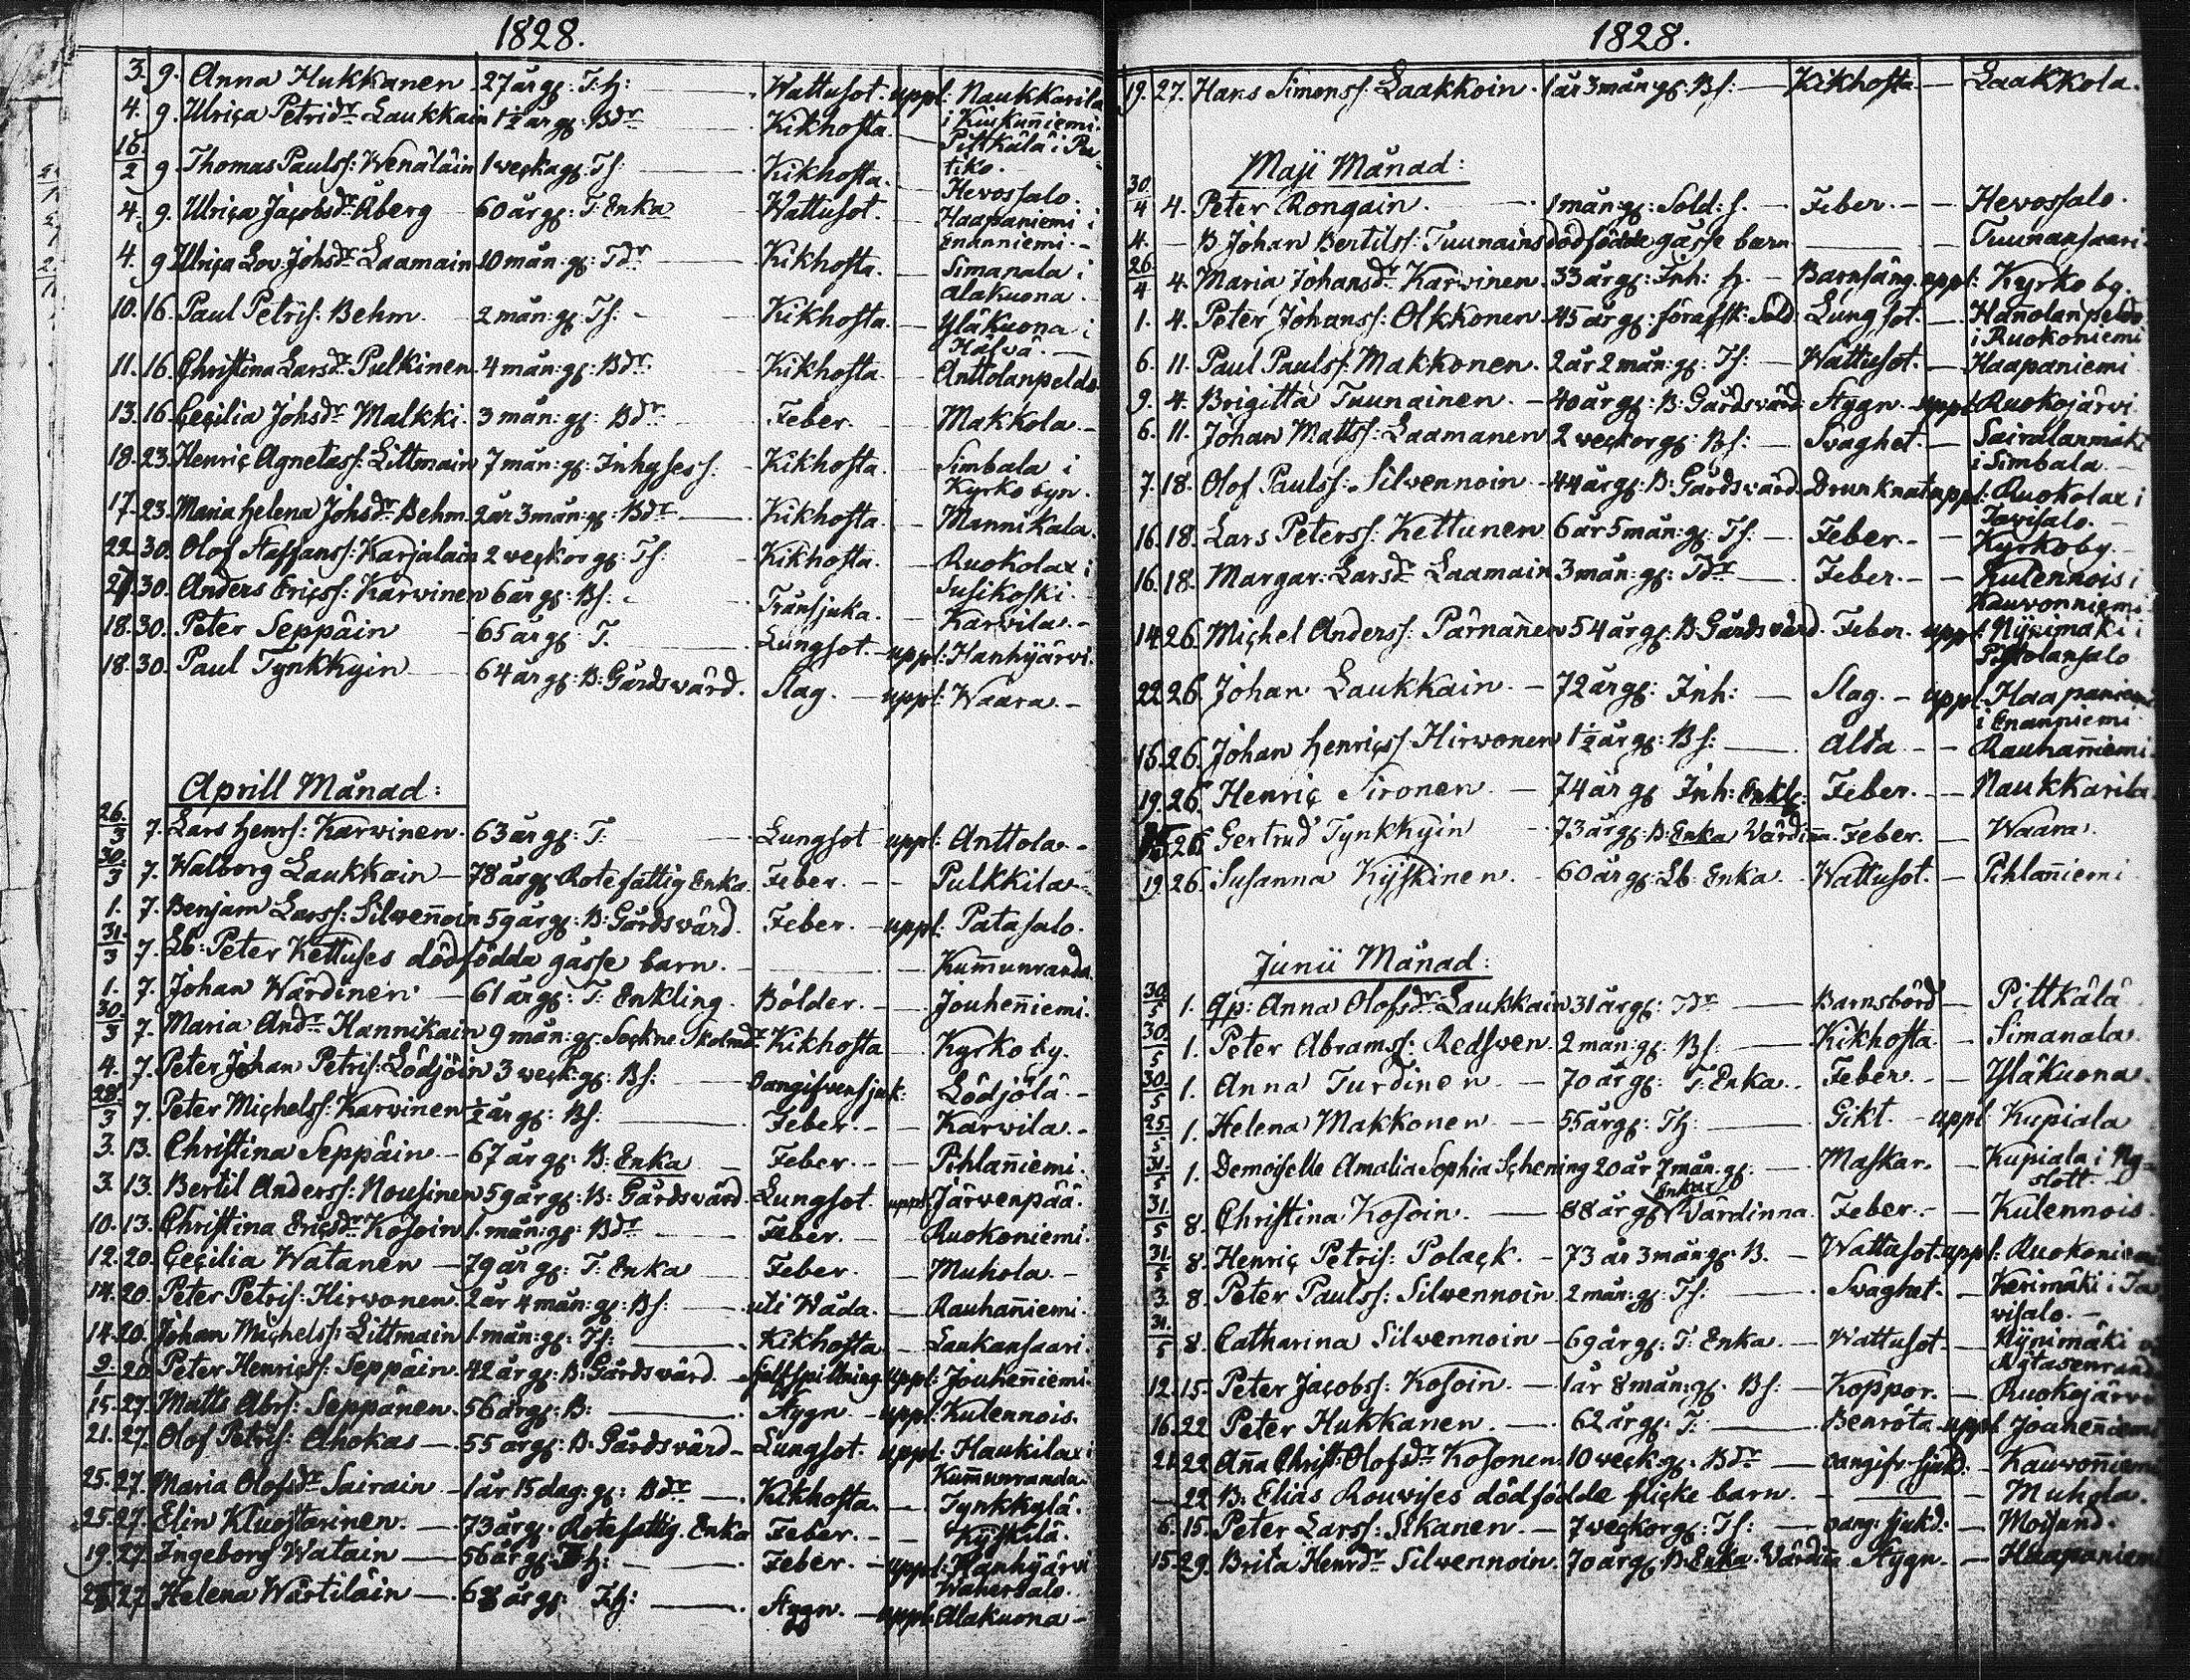 1828.
3. 9. Anna Hukkanen 27 år gl: T.h: Wattusot. uppl: Naukkarila
i Kiukunniemi.
4. 9. Ulrica Petridr Laukkain 1½ år gl: Bdr Kikhosta. Pittkälä i Pu-
tiko.
16/2 9. Thomas Paulss: Wenäläin 1 wecka gl: Ts: Kikhosta. Hevossalo.
4. 9. Ulrica Jacobsdr Åberg 60 år gl: T: Enka Wattusot. Haapaniemi i
Enanniemi.
4. 9 Ulrica Lov: Johsdr Laamain 10 mån: gl: Tdr Kikhosta. Simanala i
Alakuona.
10. 16. Paul Petris: Behm. 2 mån: gl: Ts: Kikhosta. Yläkuona i
Hälvä.
11. 16. Christina Larsdr Pulkinen 4 mån: gl: Bdr Kikhosta. Anttolanpeldo
13. 16. Cecilia Johsdr Malkki. 3 mån: gl: Bdr Feber. Makkola
18. 23. Henric Agnetass: Littmain 7 mån: gl: Inhyses s. Kikhosta. Simbala i
Kyrko byn.
17. 23. Maria Helena Johsdr Behm. 2 år 3 mån: gl: Bdr Kikhosta. Mannikala.
22. 30. Olof Staffanss: Karjalain 2 weckor gl: Ts: Kikhosta. Ruokolax i
Susikoski.
30. Anders Ericss: Karwinen 6 år gl: Bs: Transjuka. Karvila.
18. 30. Peter Seppäin 65 år gl: T. Lungsot. uppl: Hanhijärvi.
18. 30. Paul Tynkkyin 64 år gl: B: Gårdswärd. Slag. uppl: Waara.
Aprill Månad:
26/3 7. Lars Henrs: Karwinen. 63 år gl: T: Lungsot uppl: Anttola
30/3 7. Walborg Laukkain 78 år gl: Rotefattig Enka Feber. Pulkkila
1. 7. Benjam Larss: Silwennoin 59 år gl: B: Gårdswärd. Feber. uppl: Patasalo.
31/3 7. Lb: Peter Kettuses dödfödda gåsse barn. Kummunranda.
1. 7. Johan Wärdinen 61 år gl: T: Enkling. Bölder. Jouhenniemi.
30/3 7. Maria Andr Hannikain 9 mån: gl: Sockne Skolmdr Kikhosta Kyrko by.
4. 7. Peter Johan Petris: Lödjöin 3 weck: gl: Bs: Oangifven sjuk: Lödjölä.
28/3 7. Peter Michelss: Karwinen ½ år gl: Bs: Feber. Karwila.
3. 13. Christina Seppäin 67 år gl: B: Enka Feber. Pihlanniemi.
3. 13. Bertil Anderss: Nousinen 59 år gl: B: Gårdswärd. Lungsot. uppl: Järvenpää.
10. 13. Christina Ericsdr Kosoin 1. mån: gl: Bdr Feber. Ruokoniemi.
12. 20. Cecilia Watanen 79 år gl: T: Enka Feber. Muhola.
14. 20. Peter Petris: Hirwonen. 2 år 4 mån: gl: Bs: uti Wåda. Rauhanniemi.
14. 20. Johan Michelss: Littmain 1. mån: gl: Ts: Kikhosta Laukansaari.
9. 20. Peter Henricss: Seppäin. 42 år gl: B: Gårdswärd. Self spillning uppl: Jouhenniemi.
15. 27. Matts Abrs: Seppänen. 56 år gl: B: Stygn. uppl: Kulennois.
21. 27. Olof Petris: Ahokas 55 år gl: B: Gårdswärd Lungsot. uppl: Haukilax i
Kummunranda
25. 27. Maria Olofsdr Sairain 1 år 15 dag: gl: Bdr Kikhosta. Tynkkylä.
25. 27. Elin Klugstarinen. 73 år gl: Rotefattig Enka Feber. Kyskilä.
19. 27. Ingeborg Watain 56 år gl: Th: Feber. uppl: Hanhijärvi
Wahersalo.
27. Helena Wärtiläin 68 år gl: Th: Stygn. uppl: Alakuona
1828.
19. 27. Hans Simonss: Laakkoin. 1 år 3 mån: gl: Bs: Kikhosta. Laakkola.
Maji Månad:
30/4 4. Peter Rongain. 1 mån: gl: Sold: s. Feber. Hevossalo.
4. B Johan Bertilss: Tuunains dödfödde gåsse barn Tuunansaari
26/4 4. Maria Johansdr Karwinen. 33 år gl: Inh: h. Barnsäng. uppl: Kyrko by.
1. 4. Peter Johanss: Olkkonen. 45 år gl: förafsk: Sold. Lungsot. Hanolanpeldo
i Ruokoniemi
6. 11. Paul Paulss: Makkonen. 2 år 2 mån: gl: Ts: Wattusot. Haapaniemi
9. 4. Brigitta Tuunainen. 40 år gl: B: Gårdsvärd: Stygn. uppl: Ruokojärvi
6. 11. Johan Mattss: Laamanen 2 weckor gl: Bs: Svaghet. Sairalanmäki
i Simbala.
7. 18. Olof Paulss: Silvennoin 44 år gl: B: Gårdsvärd. Drunknat uppl: Ruokolax i
Tavisalo.
16. 18. Lars Peterss: Kettunen 6 år 5 mån: gl: Ts: Feber. Kyrko by.
16. 18. Margar: Larsdr Laamain 3 mån: gl: Tdr Feber. Kulennois i
Kauvonniemi
14. 26. Michel Anderss: Pärnänen 54 år gl: B: Gårdsvärd. Feber. uppl: Nyrimäki i
Pistolansalo
22. 26. Johan Laukkain. 72 år gl: Inh: Slag. uppl: Haapaniemi
i Enanniemi
15. 26. Johan Henricss Hirwonen 1½ år gl: Bs: Alta Rauhanniemi.
19. 26. Henric Sironen 74 år gl: Inh: Enkl: Feber. Naukkarila.
26 Gertrud Tynkkyin 73 år gl: B: Enka Värdinna. Feber. Waara.
19. 26. Susanna Kyskinen. 60 år gl: Lb: Enka Wattusot. Pihlanniemi
Junii Månad:
30/5 1. Qp: Anna Olofsdr Laukkain 31 år gl: Tdr Barnsbörd Pittkälä
30/5 1. Peter Abramss: Redsven. 2 mån: gl: Bs: Kikhosta Simanala
30/5 1. Anna Turdinen 70 år gl: T: Enka. Feber. Yläkuona.
25/5 1. Helena Makkonen 55 år gl: Th: Gikt. uppl Kupiala
31/5 1. Demoiselle Amalia Sophia Schening 20 år 7 mån: gl: Maskar. Kupiala i Ny-
slott.
31/5 8. Christina Kosoin. 88 år gl: Enka Värdinna. Feber. Kulennois.
31/5 8. Henric Petris: Polack. 73 år 3 mån: gl: B. Wattusot. uppl: Ruokoniemi
3. 8. Peter Paulss: Silvennoin. 2 mån: gl: Ts: Svaghet. Kerimäki i Ta-
visalo.
31/5 8. Catharina Silvennoin 69 år gl: T: Enka. Wattusot. Nyrimäki
12. 15. Peter Jacobss: Kosoin. 1 år 8 mån: gl: Bs: Koppor. Ruokojärvi
16. 22 Peter Hukkanen. 62 år gl: T: Benröta uppl Jouhenniemi
21. 22 Anna Christ: Olofsdr Kosonen. 10 weck: gl: Bdr oangifv: sjukd: Kauvonniemi
22 B: Elias Rouvises dödfödde flicke barn. Muhola.
6. 15. Peter Larss: Sikanen. 7 weckor gl: Ts: oang: sjukd: Moisund.
15. 29. Brita Henrdr Silvennoin. 70 år gl: B: Enka Värdinna Stygn. Haapaniemi